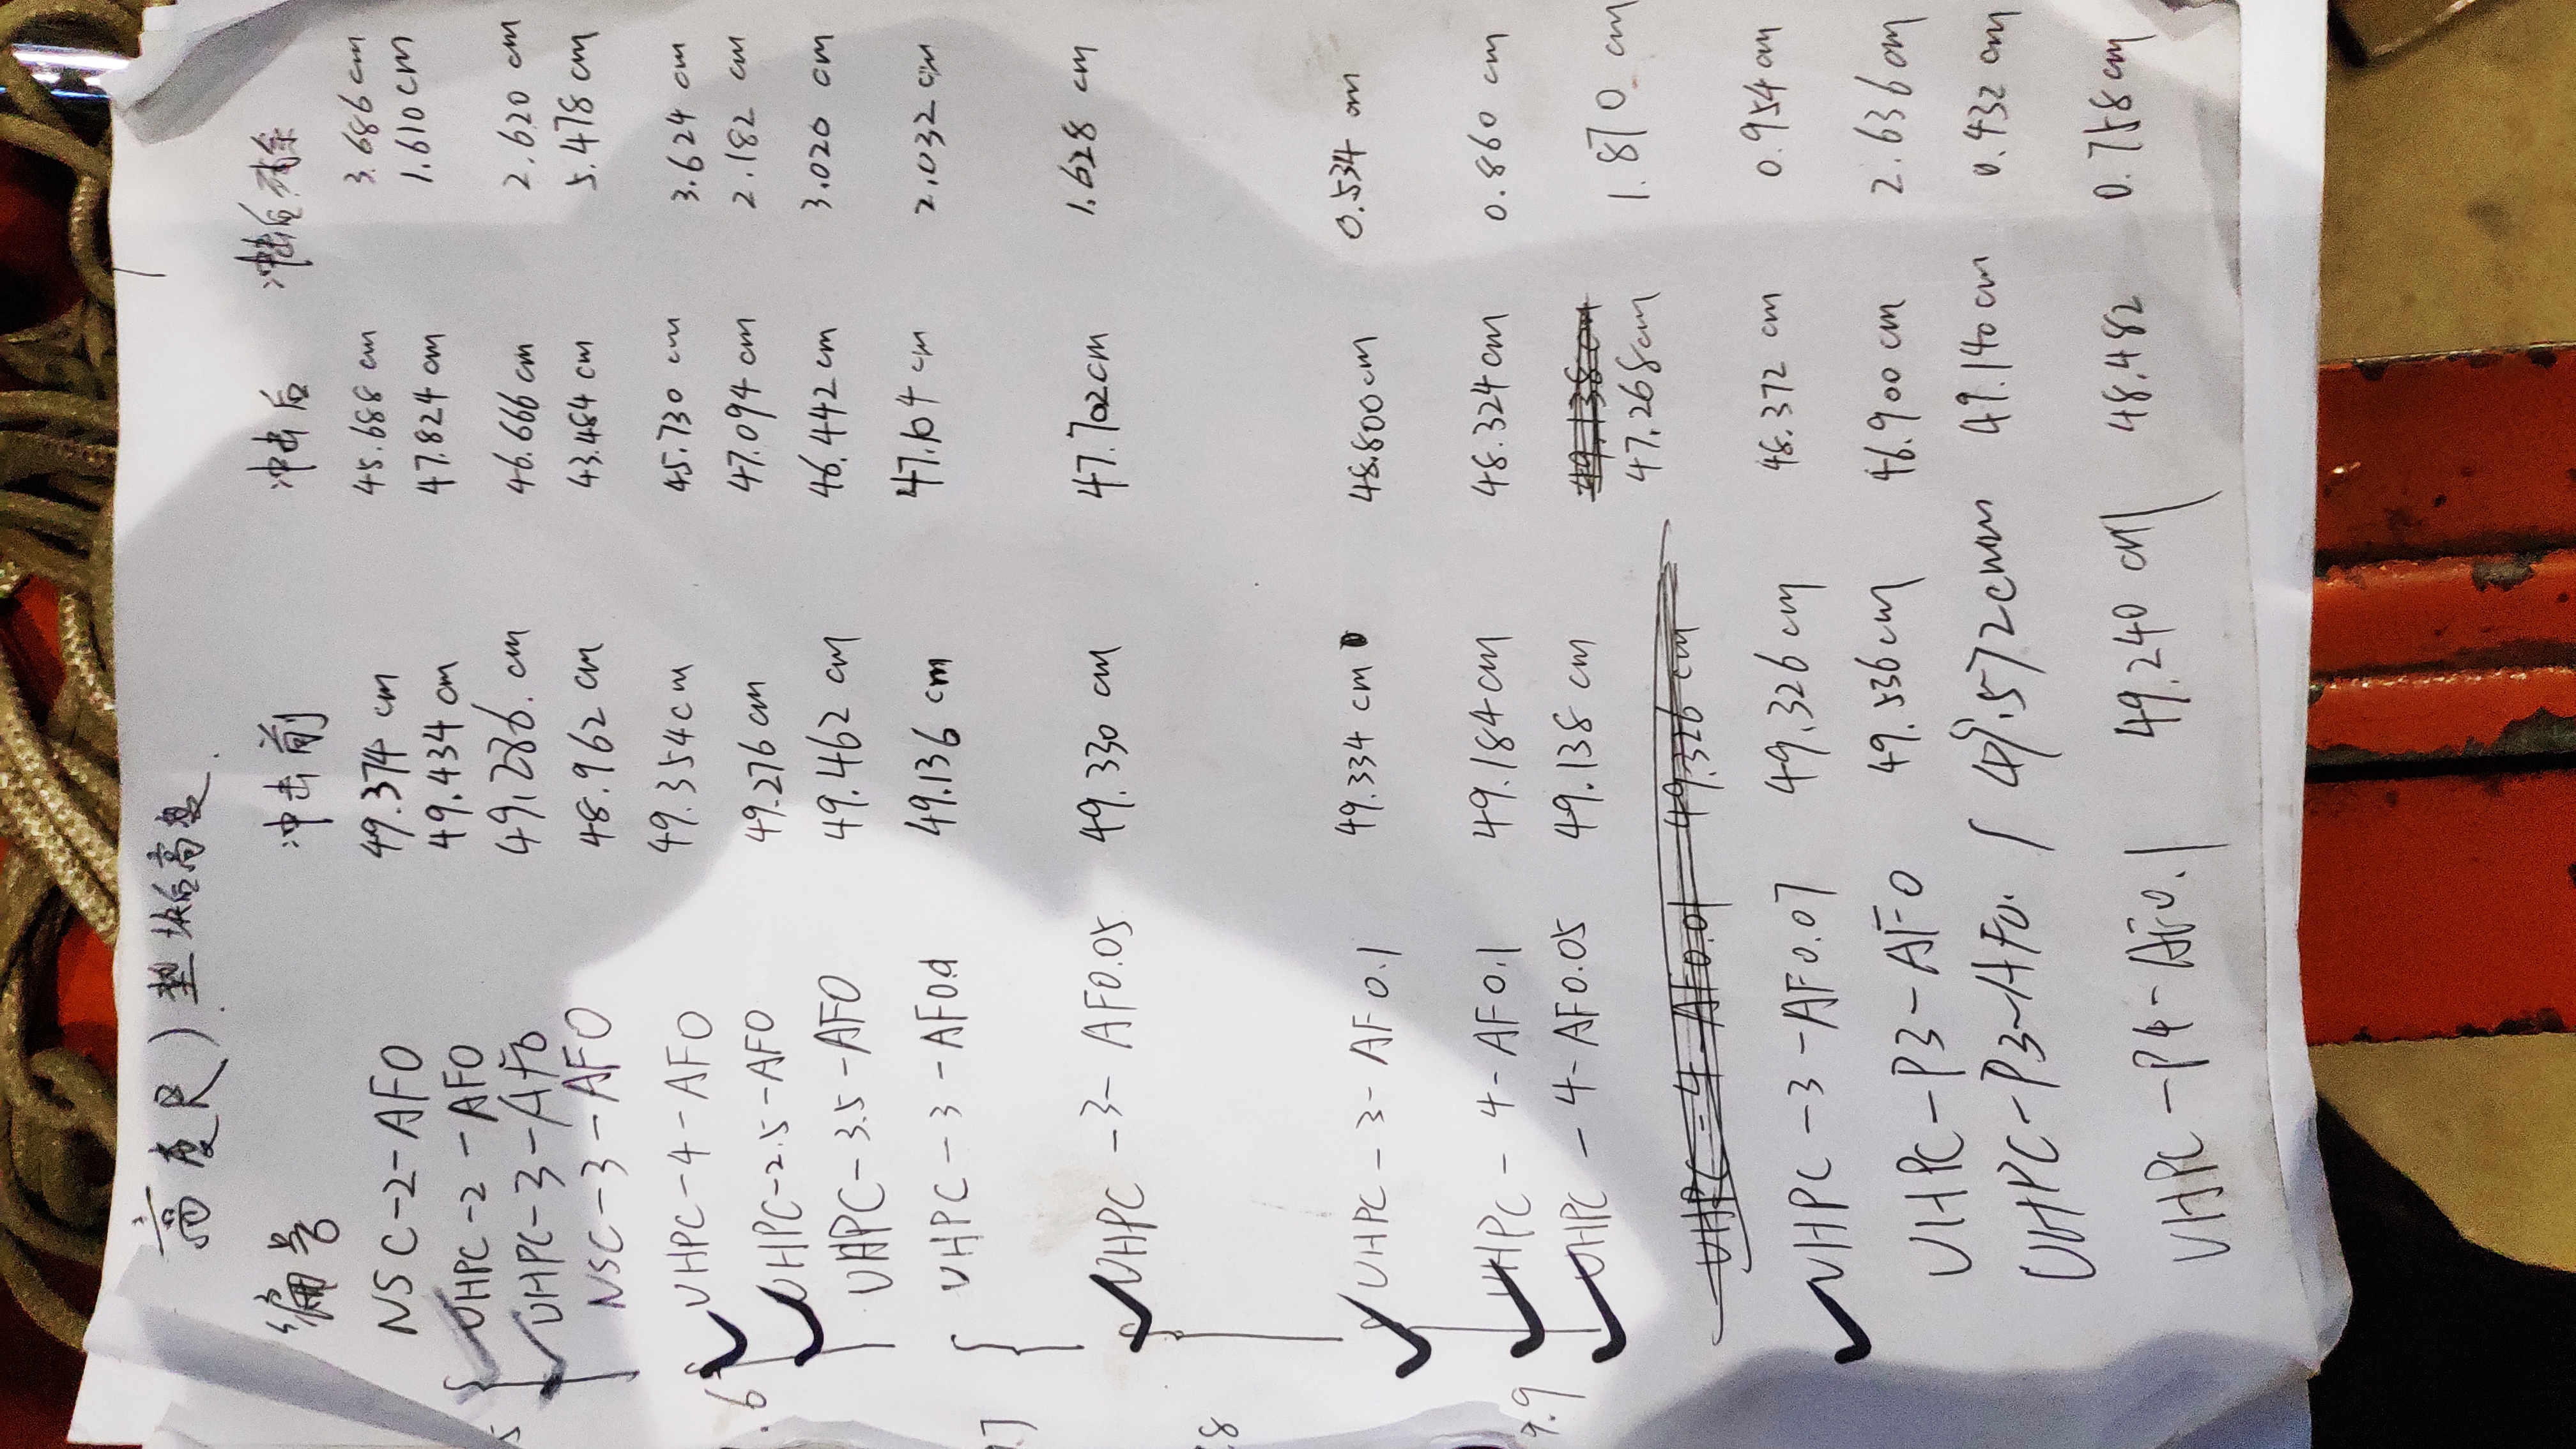 高度尺) 垫块后高度.
编号 冲击前 冲击后 冲击后残余
NSC-2-AF0 49.374 cm 45.688 cm 3.686 cm
UHPC-2-AF0 49.434 cm 47.824 cm 1.610 cm
5 UHPC-3-AF0 49.286. cm 46.666 cm 2.620 cm
NSC-3-AF0 48.962 cm 43.484 cm 5.478 cm
UHPC-4-AF0 49.354 cm 45.730 cm 3.624 cm
.6 UHPC-2.5-AF0 49.276 cm 47.094 cm 2.182 cm
UHPC-3.5-AF0 49.462 cm 46.442 cm 3.020 cm
UHPC-3-AF0. 49.136 cm 47.104 cm 2.032 cm
.7
UHPC-3-AF0.05 49.330 cm 47.702 cm 1.628 cm
.8
UHPC-3-AF0.1 49.334 cm 48.800 cm 0.534 cm
UHPC-4-AF0.1 49.184 cm 48.324 cm 0.860 cm
9.9 UHPC-4-AF0.05 49.138 cm 49.138 cm
47.268 cm 1.870 cm
UHPC-4-AF0.01 49.326 cm
UHPC-3-AF0.07 49.326 cm 48.372 cm 0.954 cm
UHPC-P3-AF0 49.536 cm 46.900 cm 2.636 cm
UHPC-P3-AF0.1 49.572 cm 49.140 cm 0.432 cm
UHPC-P4-AF0.1 49.240 cm 48.482 0.758 cm